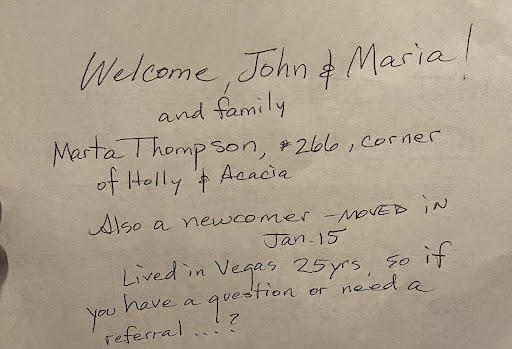 Welcome, John & Maria!
and family
Marta Thompson, #266, corner
of Holly & Acacia
Also a newcomer - MOVED iN
Jan. 15
Lived in Vegas 25yrs, so if
you have a question or need a
referral ...?